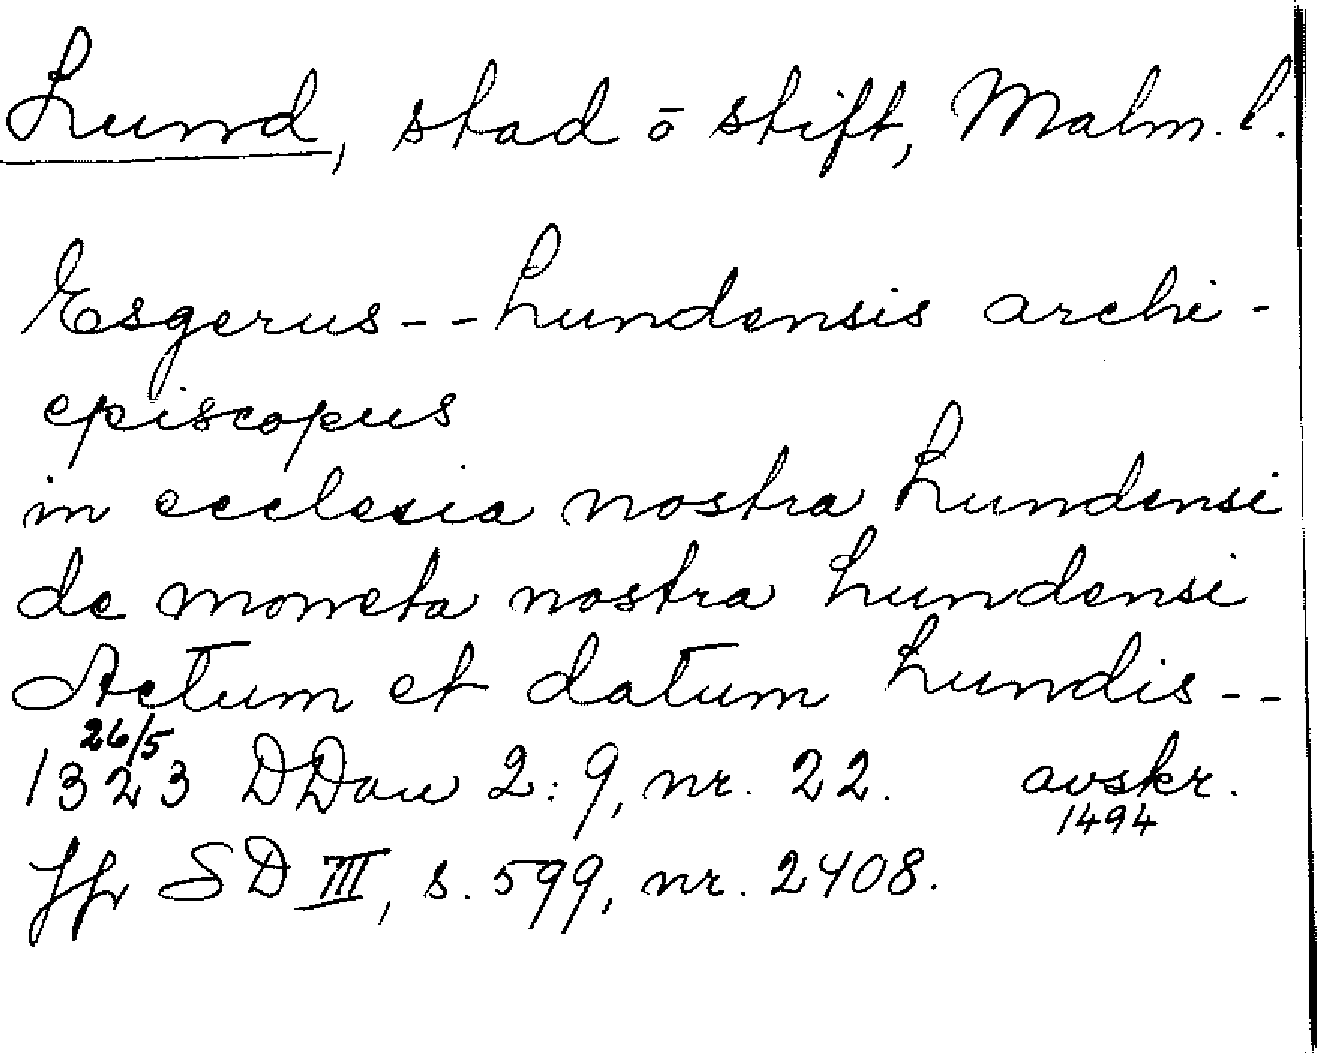 Lund, stad o stift, Malm. l.
Esgerus -- Lundensis archi-
episcopus
in ecclesia nostra Lundensi
de moneta nostra Lundensi
Actum et datum Lundis --
26/5
1323 DDan 2:9, nr. 22. avskr.
1494
Jfr SD III, s. 599, nr. 2408.